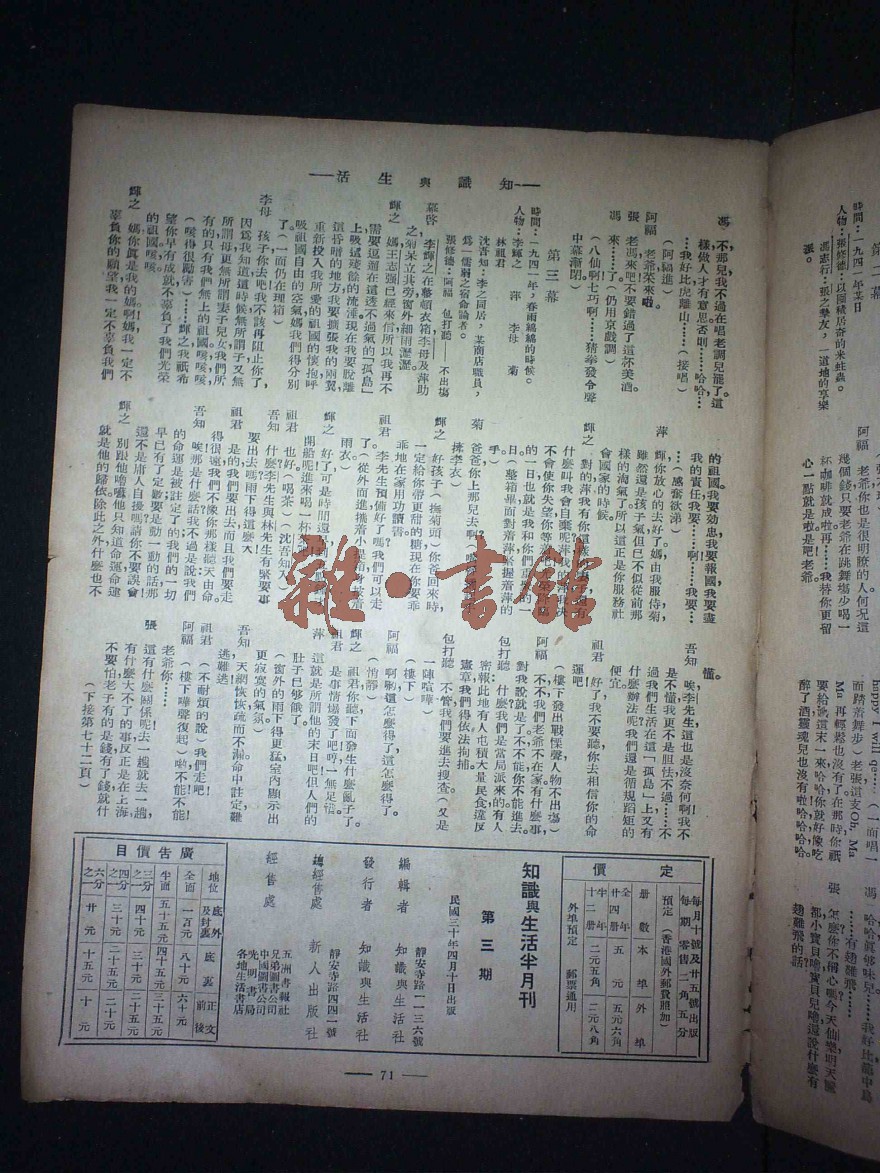 知識與生活
馮 不,那兒,我不過在唱老調兒罷了。這
樣做人才有意思否則……哈哈
……我好比虎離山……(接唱)
(阿福進)
阿福 老爺菜來啦
張 老馮來吧!不要錯過了這杯美酒。
馮 來……了(仍用京戲調)
(八仙啊七巧啊……猜拳發令聲
中幕漸閉)
第三幕
時間:一九四一年,春雨綿綿的時候。
人物:李輝之 萍 李母 菊
林祖君
沈吾知:李之同居,某商店職員,
爲一儒弱之宿命論者。
張修德:阿福 包打聽——不出場
幕啓 李輝之在整頓衣箱李母及萍助
之菊呆立其旁窗外細雨瀝瀝。
輝之 媽,王志強已經來信所以我再不
需要逗遛在這透不過氣的「孤島」
上吸這殘餘的流涶現在我要脫離
這昏暗的地方我要擴張我的兩翼,
重新投入我所愛的祖國的懷抱呼
吸祖國自由的空氣媽我們得分別
了。(一面仍在理箱)
李母 孩子,你去吧我不該再阻止你了,
因爲我知道這時候無所謂子又無
所謂母更無所謂妻子兒女我們所
有的只有我們無上的祖國咳咳咳
(咳得很勵害)……輝之我祇希
望你早有成就不辜負了我們光榮
的祖國咳咳。
輝之 媽你眞是我的媽啊!媽我一定不
辜負你的願望我一定不辜負我們
的祖國,我要効忠我要報國我要盡
我的責任我要……啊!……我要…
…(感奮欲涕)
萍 輝你放心的去好了。媽由我服侍菊
雖然還是孩子氣但已不似從前那
樣的淘氣了所以這正是你服務社
會國家的時候。
輝之
什麼叫我會自棄呢萍我的
不會使你失望你等
的一日,也就是我和你們重
日。(整箱畢面對着萍緊握着萍的
手)
菊 爸爸,你上那兒去啊?
揀李衣)
輝之 好孩子(撫菊頭)你爸回來時,
一定給你帶更甜的糖現在你要乖
乖地在家用功讀書
祖君 李先生預備好了嗎我們可以走
了。(從外面進
雨衣)
輝之 好了,可是時間還早
開船呢!進來喝一杯
祖君 也好。(喝茶)(沈吾知入)
吾知 什麽李先生與林先生有緊要事
要出去嗎雨下得這麽大
祖君 是的我們要出去而且我們要走
得很遠我們不像你那樣聽天由命。
吾知 唉那是什麼話我不過是說我們
的命運是被註定了的我們的一切
早已有了定數要是動一動的話那
還不是庸人自擾嗎請你不要誤會
輝之 別跟他嚕囌他只知道命運命運
就是他的歸依除此之外什麽也不
懂。
吾知 唉李先生這也是沒奈何啊!我不
是不懂我更不是胆怯不過……不
過我們生活在這「孤島」上又有
什麽辦法呢?我們還是循規蹈矩的
便宜。
祖君 好了,我不要聽你去相信你的命
運吧!
(樓下發出戰慄聲人物不出塲)
阿福 不,不,我們老爺不在家。有什麽事,
對我說就是了不,不能你不能進去。
包打聽 什麽我們是當局派來的有人
密報此地有人屯積大量民食違反
憲章我們得依法拘捕。
包打聽 不管我們要進去搜查(又是
一陣喧嘩)
(樓下)
阿福 啊,喲,這怎麼得了。這怎麼得了。
(悄靜)
輝之 祖君你聽下面發生什麽亂子了。
祖君 是事情爆發了吧哼,一無足惜。
萍 這就是所謂他的末日吧但人們的
肚子已够餓了。
(窗外的雨下得更猛室內顯示出
更寂寞的氣氛)
吾知 天網恢恢疏而不漏命中註定難
逃難逃
祖君 (不耐煩的說)我們走吧!
阿福 (樓下嘩聲復起)喲不能不能
老爺你……
張 這有什麽關係呢去一趟就去一趟,
有什麽大不了的事反正是在上海
不要怕老子有的是錢有了錢就什
(下接第七十二頁)
定價
每月十號及廿五號出版
每期零售二角五分
預定(香港國外郵費照加)
册數 本埠 外埠
全年廿四册 五元 五元六角
半年十二册 二元五角 二元八角
外埠預定 郵票通用
知識與生活半月刊
第三期
民國三十年四月十日出版
編輯者 知識與生活社
靜安寺路一一三六號
發行者 知識與生活社
靜安寺路四四一號
總經售處 新人出版社
經售處 五洲書報社
兄弟圖書公司
中國圖書公司
光明書局
各地生活書店
廣告價目
地位 底外及封裏 底裏 正文前後
全面 一百元 八十元 六十元
半面 五十五元 四十五元 三十五元
三分之一 四十元 三十元 二十五元
四分之一 三十元 二十五元 二十元
六分之一 廿元 十五元 十元
71
雜·書館
第二幕
時間:一九四一年某日
人物:張修德:以囤積居奇的米蛀蟲。
馮志行:張之擧友,一道地的享樂
派。
阿福 老爺你也是很明瞭的人何况這
幾個錢只要老爺在跳舞塲少喝一
杯咖啡就成啦再……我替你更留
心一點就是啦是吧老爺
happy I will go……(一面唱一
而踏着舞步)老張,這支Oh, Ma
Ma 再輕鬆也沒有了在那時你祇
要給牠這末一來哈哈你就好像吃
醉了酒靈魂兒也沒有啦哈哈哈。
張
馮 哈哈眞够味兒……我好比籠中鳥
……有翅難飛……
張 怎麼你不稱心嗎今天仙樂明天麗
都小寶貝嚕寶貝兒嚕還說什麽有
翅難飛的話